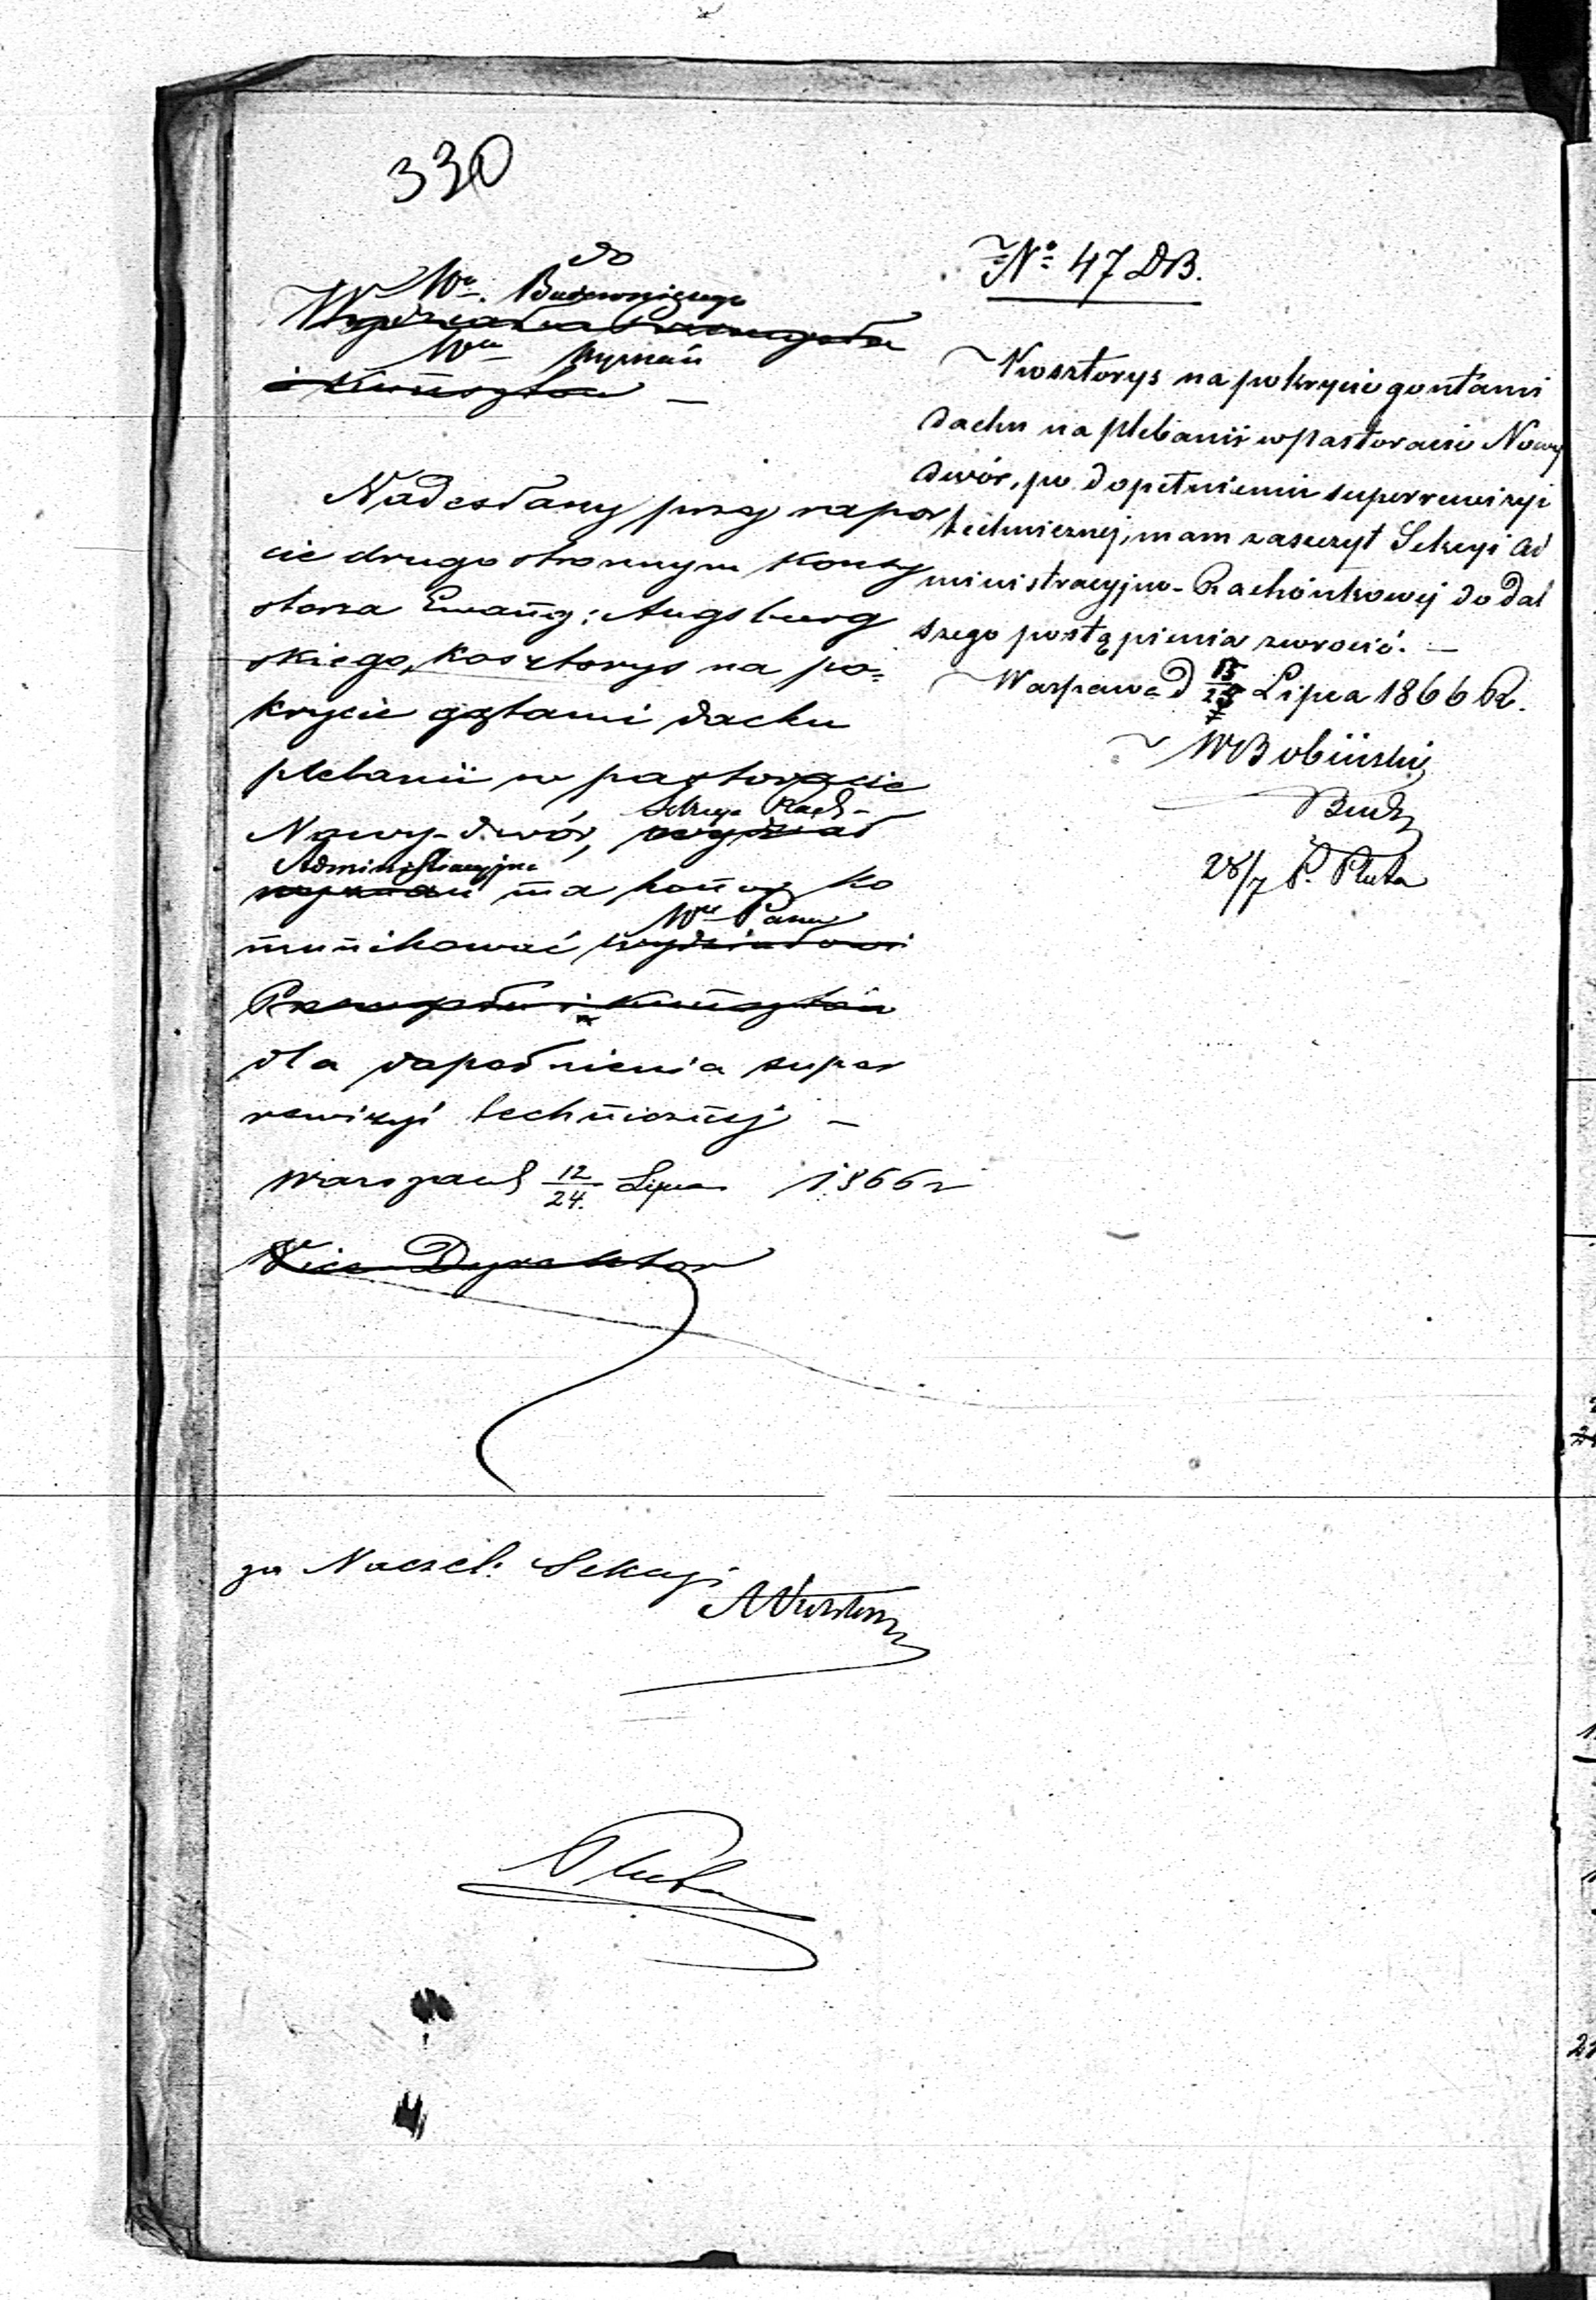 330
do
Wo. Budowniczego
Wydziału Przemysłu
Wo
i Kunsztów —
Nadesłany przy rapor
cie drugostronnym Konsy
storza Ewang: Augsburg
skiego, kosztorys na po=
krycie gątami dachu
plebanii w pastoracie
Sekcya Rach-
Nowy-dwór, wydział
Administracyjna
ma honor ko
Wu Panu
munikować wydziałowi
Przemysłu i Kunsztów
dla dopełnienia super
rewizyi technicznej —
Warszawa d 12/24. Lipca 1866 r
Vice Dyrektor
za Naczel. Sekcyi
Pluta
No 47 DB.
Kosztorys na pokrycie gontami
dachu na plebanii w pastoracie Nowy
dwór, po dopełnieniu superrewizyi
technicznej, mam zaszczyt Sekcyi Ad
ministracyjno-Rachunkowej do dal
szego postąpienia zwrócić. —
Warszawa d 15/27 Lipca 1866 R.
W Bobiński
Bud
28/7 P. Pluta